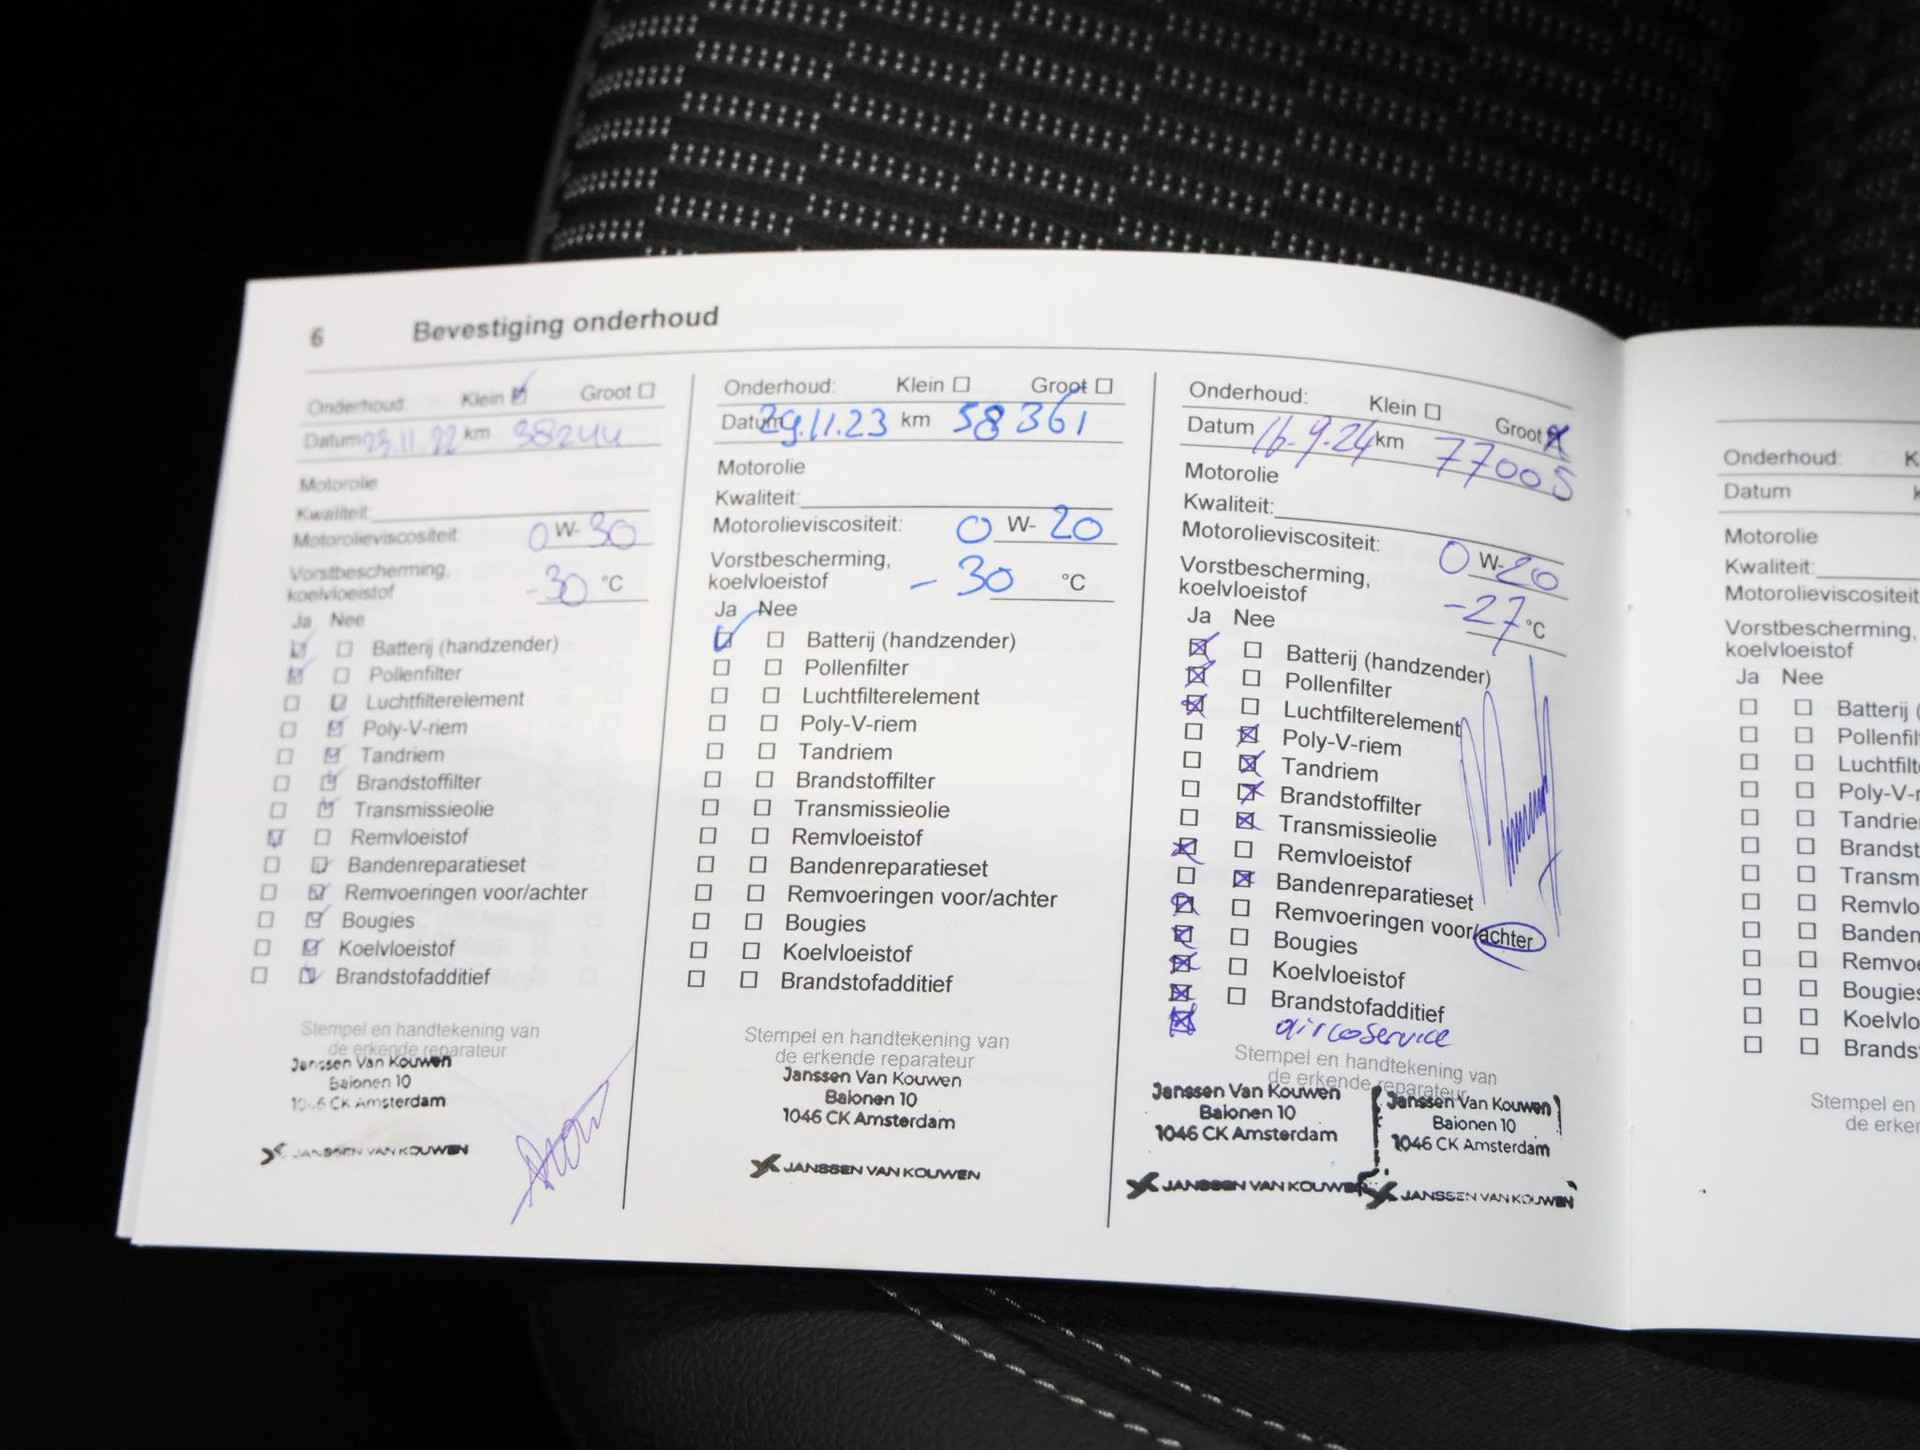 6 Bevestiging onderhoud
Onderhoud: Klein Groot
Datum 23.11.22 km 38244
Motorolie
Kwaliteit:
Motorolieviscositeit: 0 W- 30
Vorstbescherming,
koelvloeistof -30 °C
Ja Nee
Batterij (handzender)
Pollenfilter
Luchtfilterelement
Poly-V-riem
Tandriem
Brandstoffilter
Transmissieolie
Remvloeistof
Bandenreparatieset
Remvoeringen voor/achter
Bougies
Koelvloeistof
Brandstofadditief
Stempel en handtekening van
de erkende reparateur
Janssen Van Kouwen
Baionen 10
1046 CK Amsterdam
JANSSEN VAN KOUWEN
Onderhoud: Klein Groot
Datum 29.11.23 km 58361
Motorolie
Kwaliteit:
Motorolieviscositeit: 0 W- 20
Vorstbescherming,
koelvloeistof - 30 °C
Ja Nee
Batterij (handzender)
Pollenfilter
Luchtfilterelement
Poly-V-riem
Tandriem
Brandstoffilter
Transmissieolie
Remvloeistof
Bandenreparatieset
Remvoeringen voor/achter
Bougies
Koelvloeistof
Brandstofadditief
Stempel en handtekening van
de erkende reparateur
Janssen Van Kouwen
Baionen 10
1046 CK Amsterdam
JANSSEN VAN KOUWEN
Onderhoud: Klein Groot
Datum 16-9-24 km 77005
Motorolie
Kwaliteit:
Motorolieviscositeit: 0 W- 20
Vorstbescherming,
koelvloeistof -27 °C
Ja Nee
Batterij (handzender)
Pollenfilter
Luchtfilterelement
Poly-V-riem
Tandriem
Brandstoffilter
Transmissieolie
Remvloeistof
Bandenreparatieset
Remvoeringen voor/achter
Bougies
Koelvloeistof
Brandstofadditief
aircoservice
Stempel en handtekening van
de erkende reparateur
Janssen Van Kouwen
Baionen 10
1046 CK Amsterdam
JANSSEN VAN KOUWEN
Janssen Van Kouwen
Baionen 10
1046 CK Amsterdam
JANSSEN VAN KOUWEN
Onderhoud: K
Datum
Motorolie
Kwaliteit:
Motorolieviscositeit
Vorstbescherming,
koelvloeistof
Ja Nee
Batterij (
Pollenfil
Luchtfilt
Poly-V-r
Tandrie
Brandst
Transm
Remvlo
Banden
Remvo
Bougies
Koelvlo
Brands
Stempel en
de erker